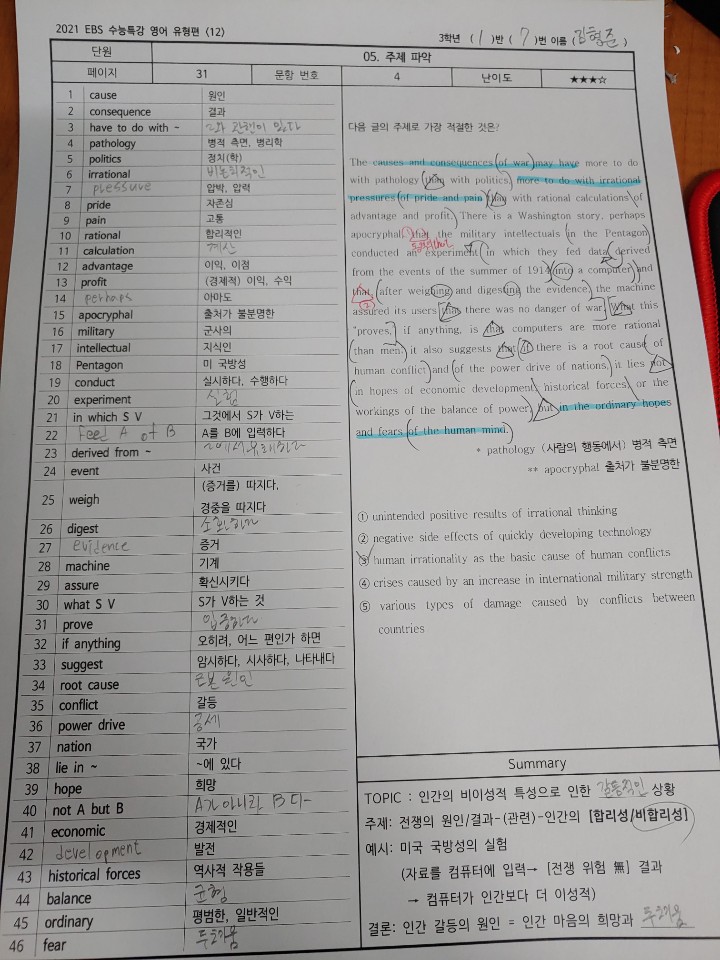 2021 EBS 수능특강 영어 유형편 <12>
3학년 ( 1 )반 ( 7 )번 이름 (김형준)
단원
05. 주제 파악
페이지
31
문항 번호
4
난이도
★★★☆
1 cause 원인
2 consequence 결과
3 have to do with ~ ~와 관련이 있다
4 pathology 병적 측면, 병리학
5 politics 정치(학)
6 irrational 비논리적인
7 pressure 압박, 압력
8 pride 자존심
9 pain 고통
10 rational 합리적인
11 calculation 계산
12 advantage 이익, 이점
13 profit (경제적) 이익, 수익
14 perhaps 아마도
15 apocryphal 출처가 불분명한
16 military 군사의
17 intellectual 지식인
18 Pentagon 미 국방성
19 conduct 실시하다, 수행하다
20 experiment 실험
21 in which S V 그것에서 S가 V하는
22 feed A of B A를 B에 입력하다
23 derived from ~ ~에서 유래하다
24 event 사건
25 weigh (증거를) 따지다,
경중을 따지다
26 digest 소화하다
27 evidence 증거
28 machine 기계
29 assure 확신시키다
30 what S V S가 V하는 것
31 prove 입증하다
32 if anything 오히려, 어느 편인가 하면
33 suggest 암시하다, 시사하다, 나타내다
34 root cause 근본 원인
35 conflict 갈등
36 power drive 공세
37 nation 국가
38 lie in ~ ~에 있다
39 hope 희망
40 not A but B A가 아니라 B다
41 economic 경제적인
42 development 발전
43 historical forces 역사적 작용들
44 balance 균형
45 ordinary 평범한, 일반적인
46 fear 두려움
다음 글의 주제로 가장 적절한 것은?
The causes and consequences of war may have more to do
with pathology than with politics, more to do with irrational
pressures of pride and pain than with rational calculations of
advantage and profit. There is a Washington story, perhaps
apocryphal, that the military intellectuals in the Pentagon
conducted an experiment in which they fed data derived
from the events of the summer of 1914 into a computer and
that, after weighing and digesting the evidence, the machine
assured its users that there was no danger of war. What this
"proves," if anything, is that computers are more rational
than men; it also suggests that if there is a root cause of
human conflict and of the power drive of nations, it lies not
in hopes of economic development, historical forces, or the
workings of the balance of power, but in the ordinary hopes
and fears of the human mind.
* pathology (사람의 행동에서) 병적 측면
** apocryphal 출처가 불분명한
① unintended positive results of irrational thinking
② negative side effects of quickly developing technology
③ human irrationality as the basic cause of human conflicts
④ crises caused by an increase in international military strength
⑤ various types of damage caused by conflicts between
countries
Summary
TOPIC : 인간의 비이성적 특성으로 인한 갈등적인 상황
주제: 전쟁의 원인/결과-(관련)-인간의 [합리성/비합리성]
예시: 미국 국방성의 실험
(자료를 컴퓨터에 입력→ [전쟁 위험 無] 결과
→ 컴퓨터가 인간보다 더 이성적)
결론: 인간 갈등의 원인 = 인간 마음의 희망과 두려움